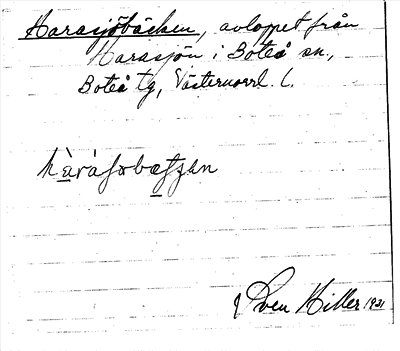 Harasjöbäcken, avloppet från
Harasjön i Boteå sn,
Boteå tg, Västernorrl. l.
hàráʃobæʃʒen
Sven Hiller 1931